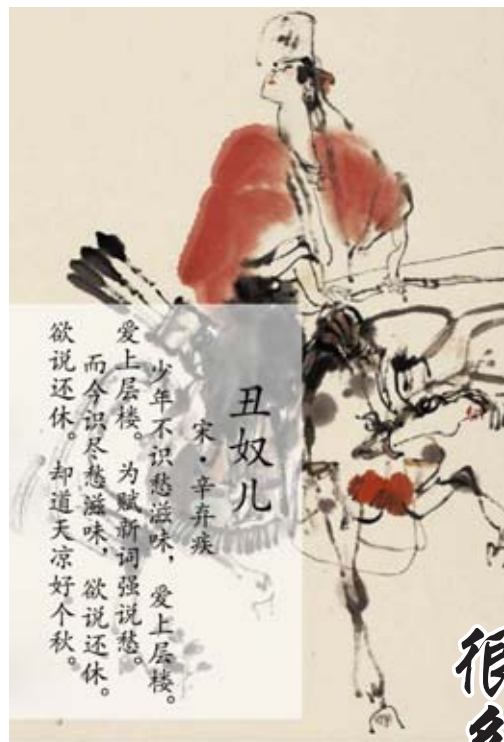 丑奴儿
宋·辛弃疾
少年不识愁滋味，爱上层楼。
爱上层楼。为赋新词强说愁。
而今识尽愁滋味，欲说还休。
欲说还休。却道天凉好个秋。
很